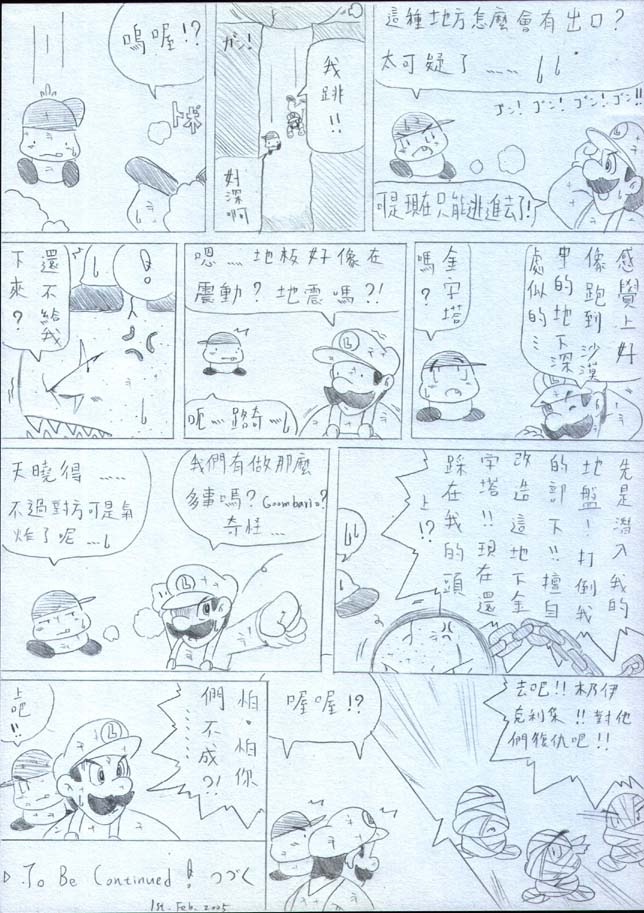 這種地方怎麼會有出口?
太可疑了......
ゴン!ゴン!ゴン!ゴン!!
可是現在只能逃進去了!
我跳!!
ガシ!
好深啊
嗚喔!?
感覺上好
像跑到沙漠
中的地下深
處似的...
金字塔
嗎?
嗯......地板好像在
震動?地震嗎?!
呃......路奇......
!
還不給我
下來?
先是潛入我的
地盤!打倒我
的部下!!擅自
改造這地下金
字塔!!現在還
踩在我的頭
上!?
我們有做那麼
多事嗎?Goombario?
奇怪...
天曉得......
不過對方可是氣
炸了呢......
L
去吧!!木乃伊
克利!!對他
們復仇吧!!
喔喔!?
怕·怕你
們不成......?!
上吧!!
To Be Continued! つづく
1st. Feb. 2005